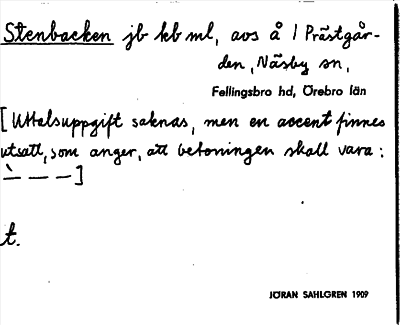 Stenbacken jb kb ml, avs å 1 Prästgår-
den, Näsby sn,
Fellingsbro hd, Örebro län
[Uttalsuppgift saknas, men en accent finnes
utsatt, som anger, att betoningen skall vara:
\̀ — — —]
t.
JÖRAN SAHLGREN 1909